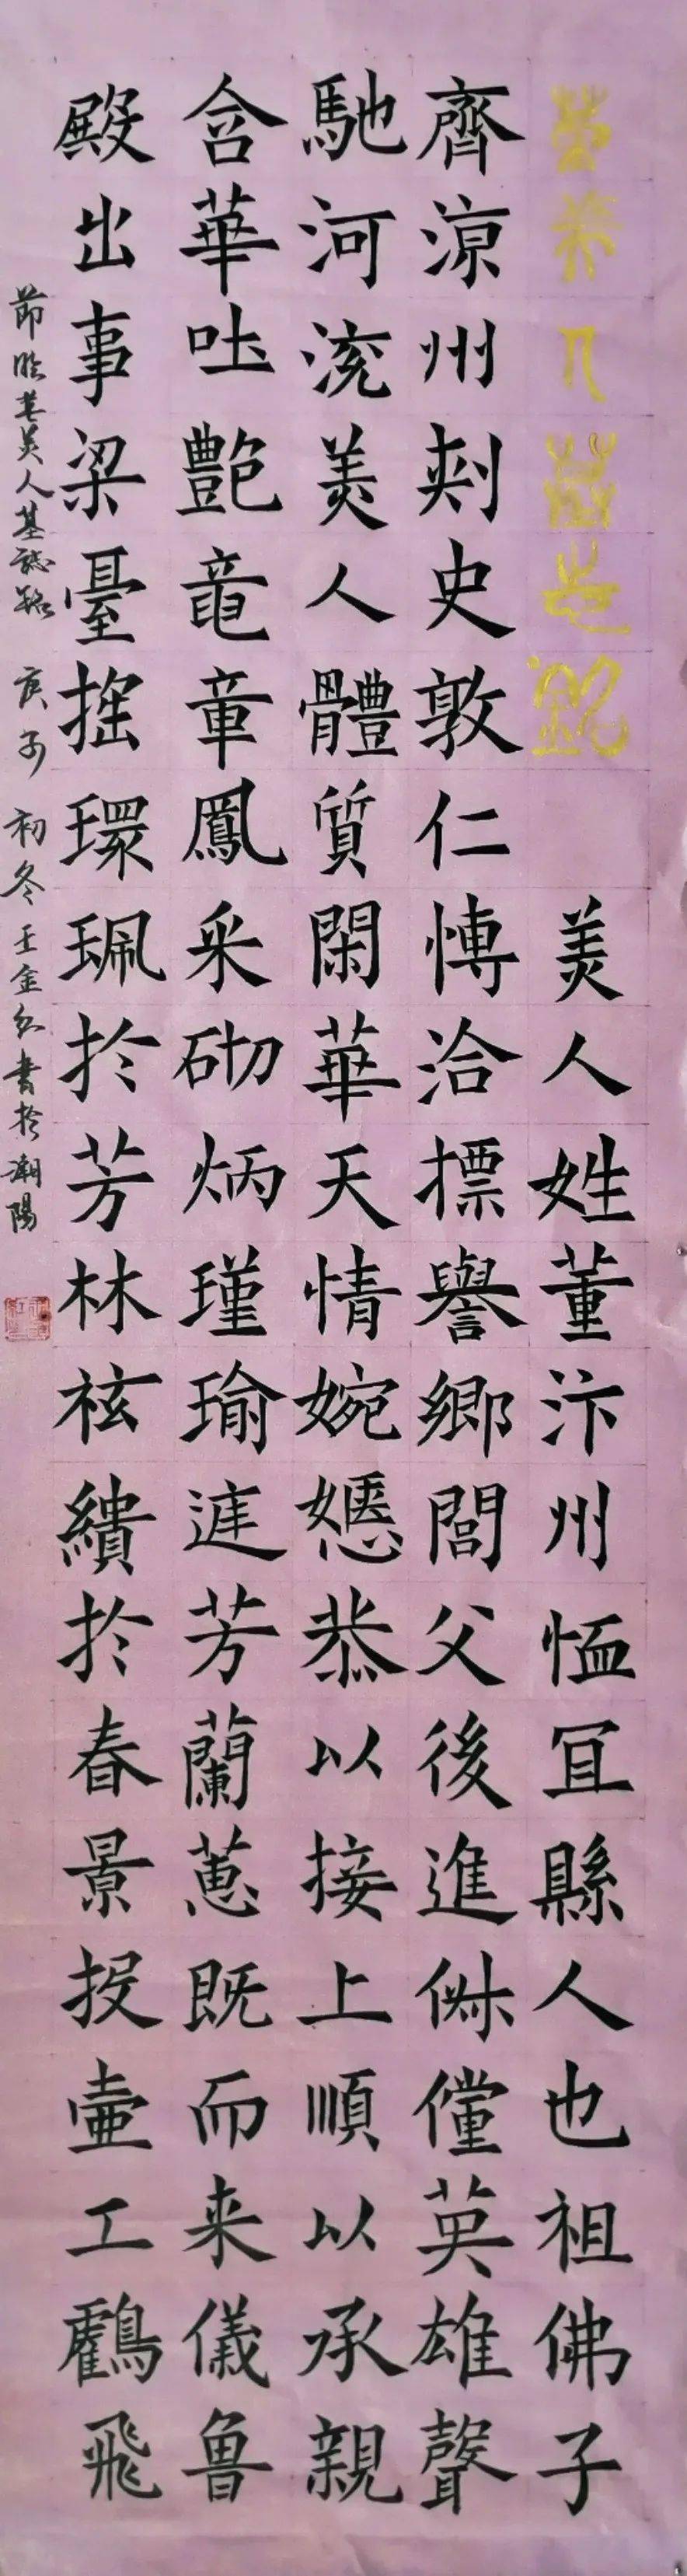 董美人墓志銘 美人姓董汴州恤冝縣人也祖佛子
齊涼州刾史敦仁愽洽摽譽鄉閭父後進俶儻英雄聲
馳河渷美人體質閑華天情婉嫕恭以接上順以承親
含華吐艷竜章鳳采砌炳瑾瑜遳芳蘭蕙既而来儀魯
殿出事梁臺搖環珮扵芳林袨繢扵春景投壷工鸖飛
節臨董美人墓誌銘 庚子初冬王金紅書於潮陽